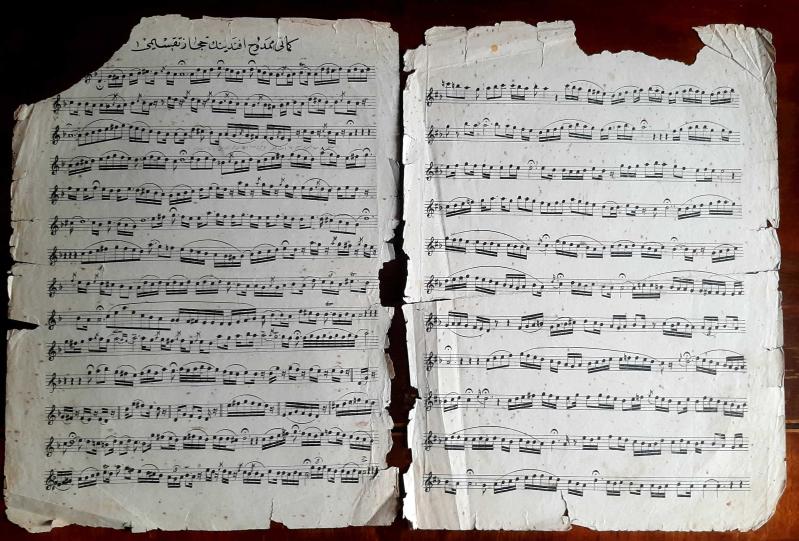 كمانی ممدوح افندینك حجاز تقسیمی ١